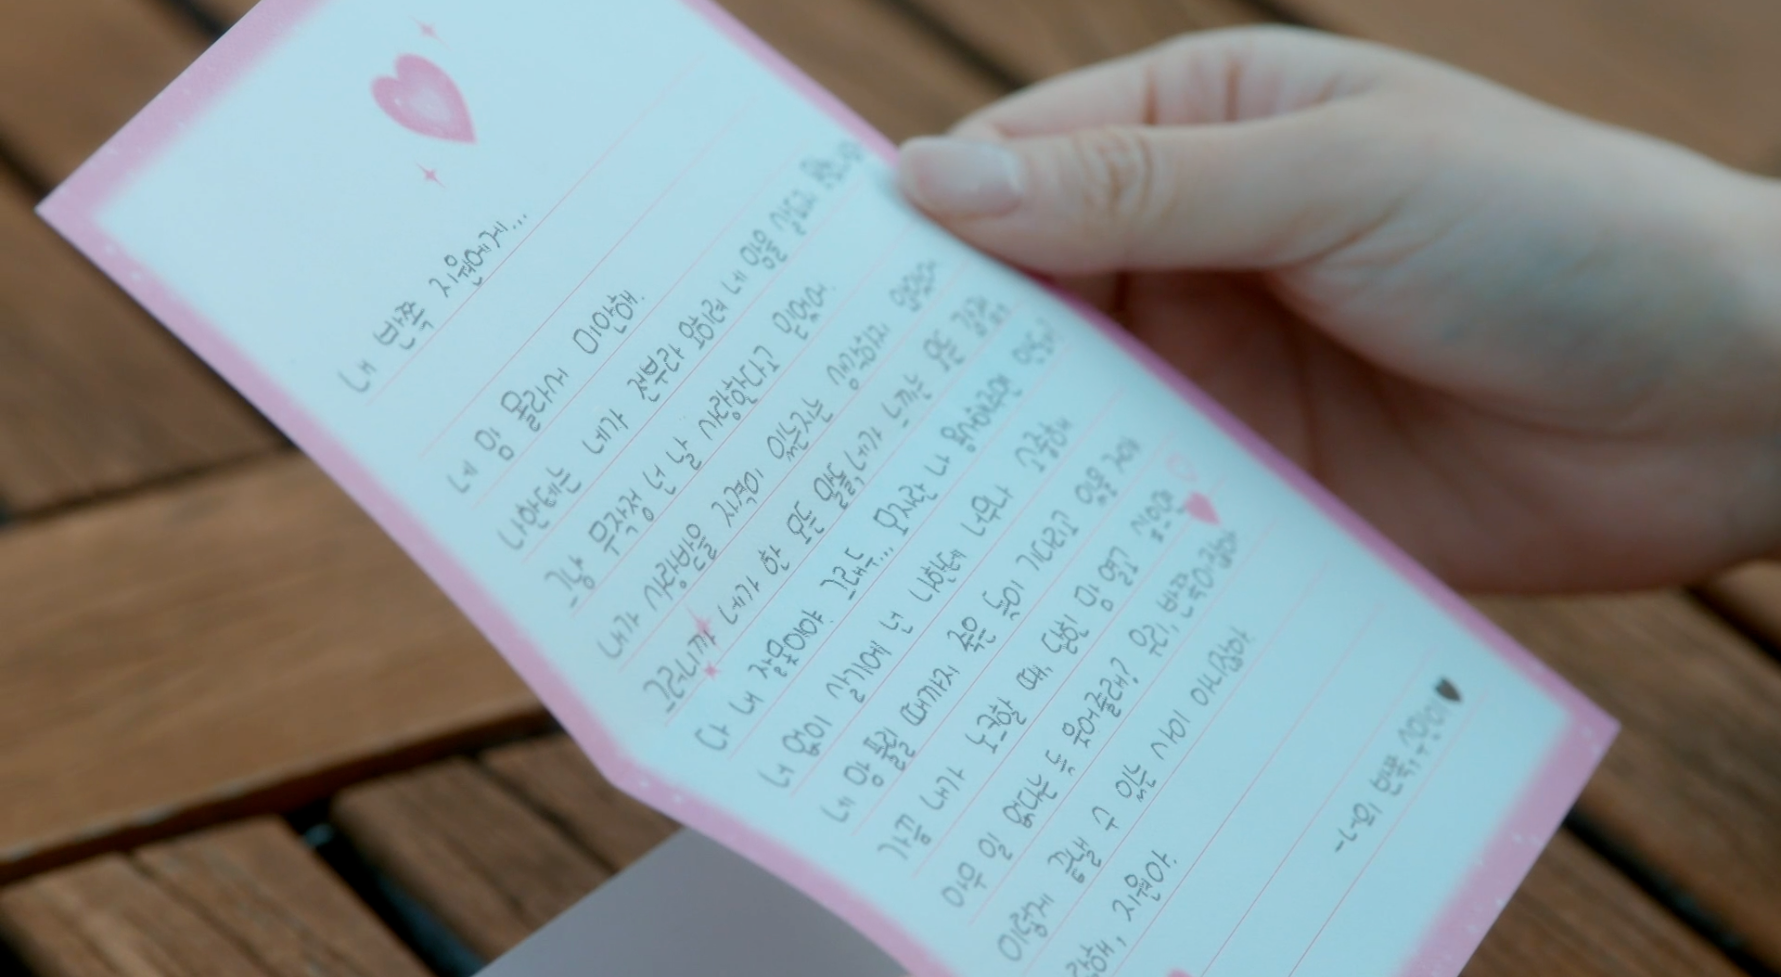 내 반쪽 지원에게...
네 맘 몰라서 미안해.
나한테는 네가 전부라 왕이려 네 마음 살피지
그냥 무작정 넌 날 사랑한다고 믿었어.
내가 사랑받을 자격이 있는지는 생각하지 않았어
그러니까 내가 한 모든 말들, 네가 느끼는 모든 감정
다 내 잘못이야. 그래두... 모자란 나 용서해주면 안돼?
너 없이 살기에 넌 나한테 너무나 소중해
네 맘 풀릴 때까지 죽은 듯이 기다리고 있을 거야
가끔 내가 노크할 때, 닫힌 맘 열고
아무 일 없다는 듯 웃어줄래? 우리, 반쪽이잖아
이렇게 끝낼 수 있는 사이 아니잖아.
해, 지원아.
-너의 반쪽, 수민이